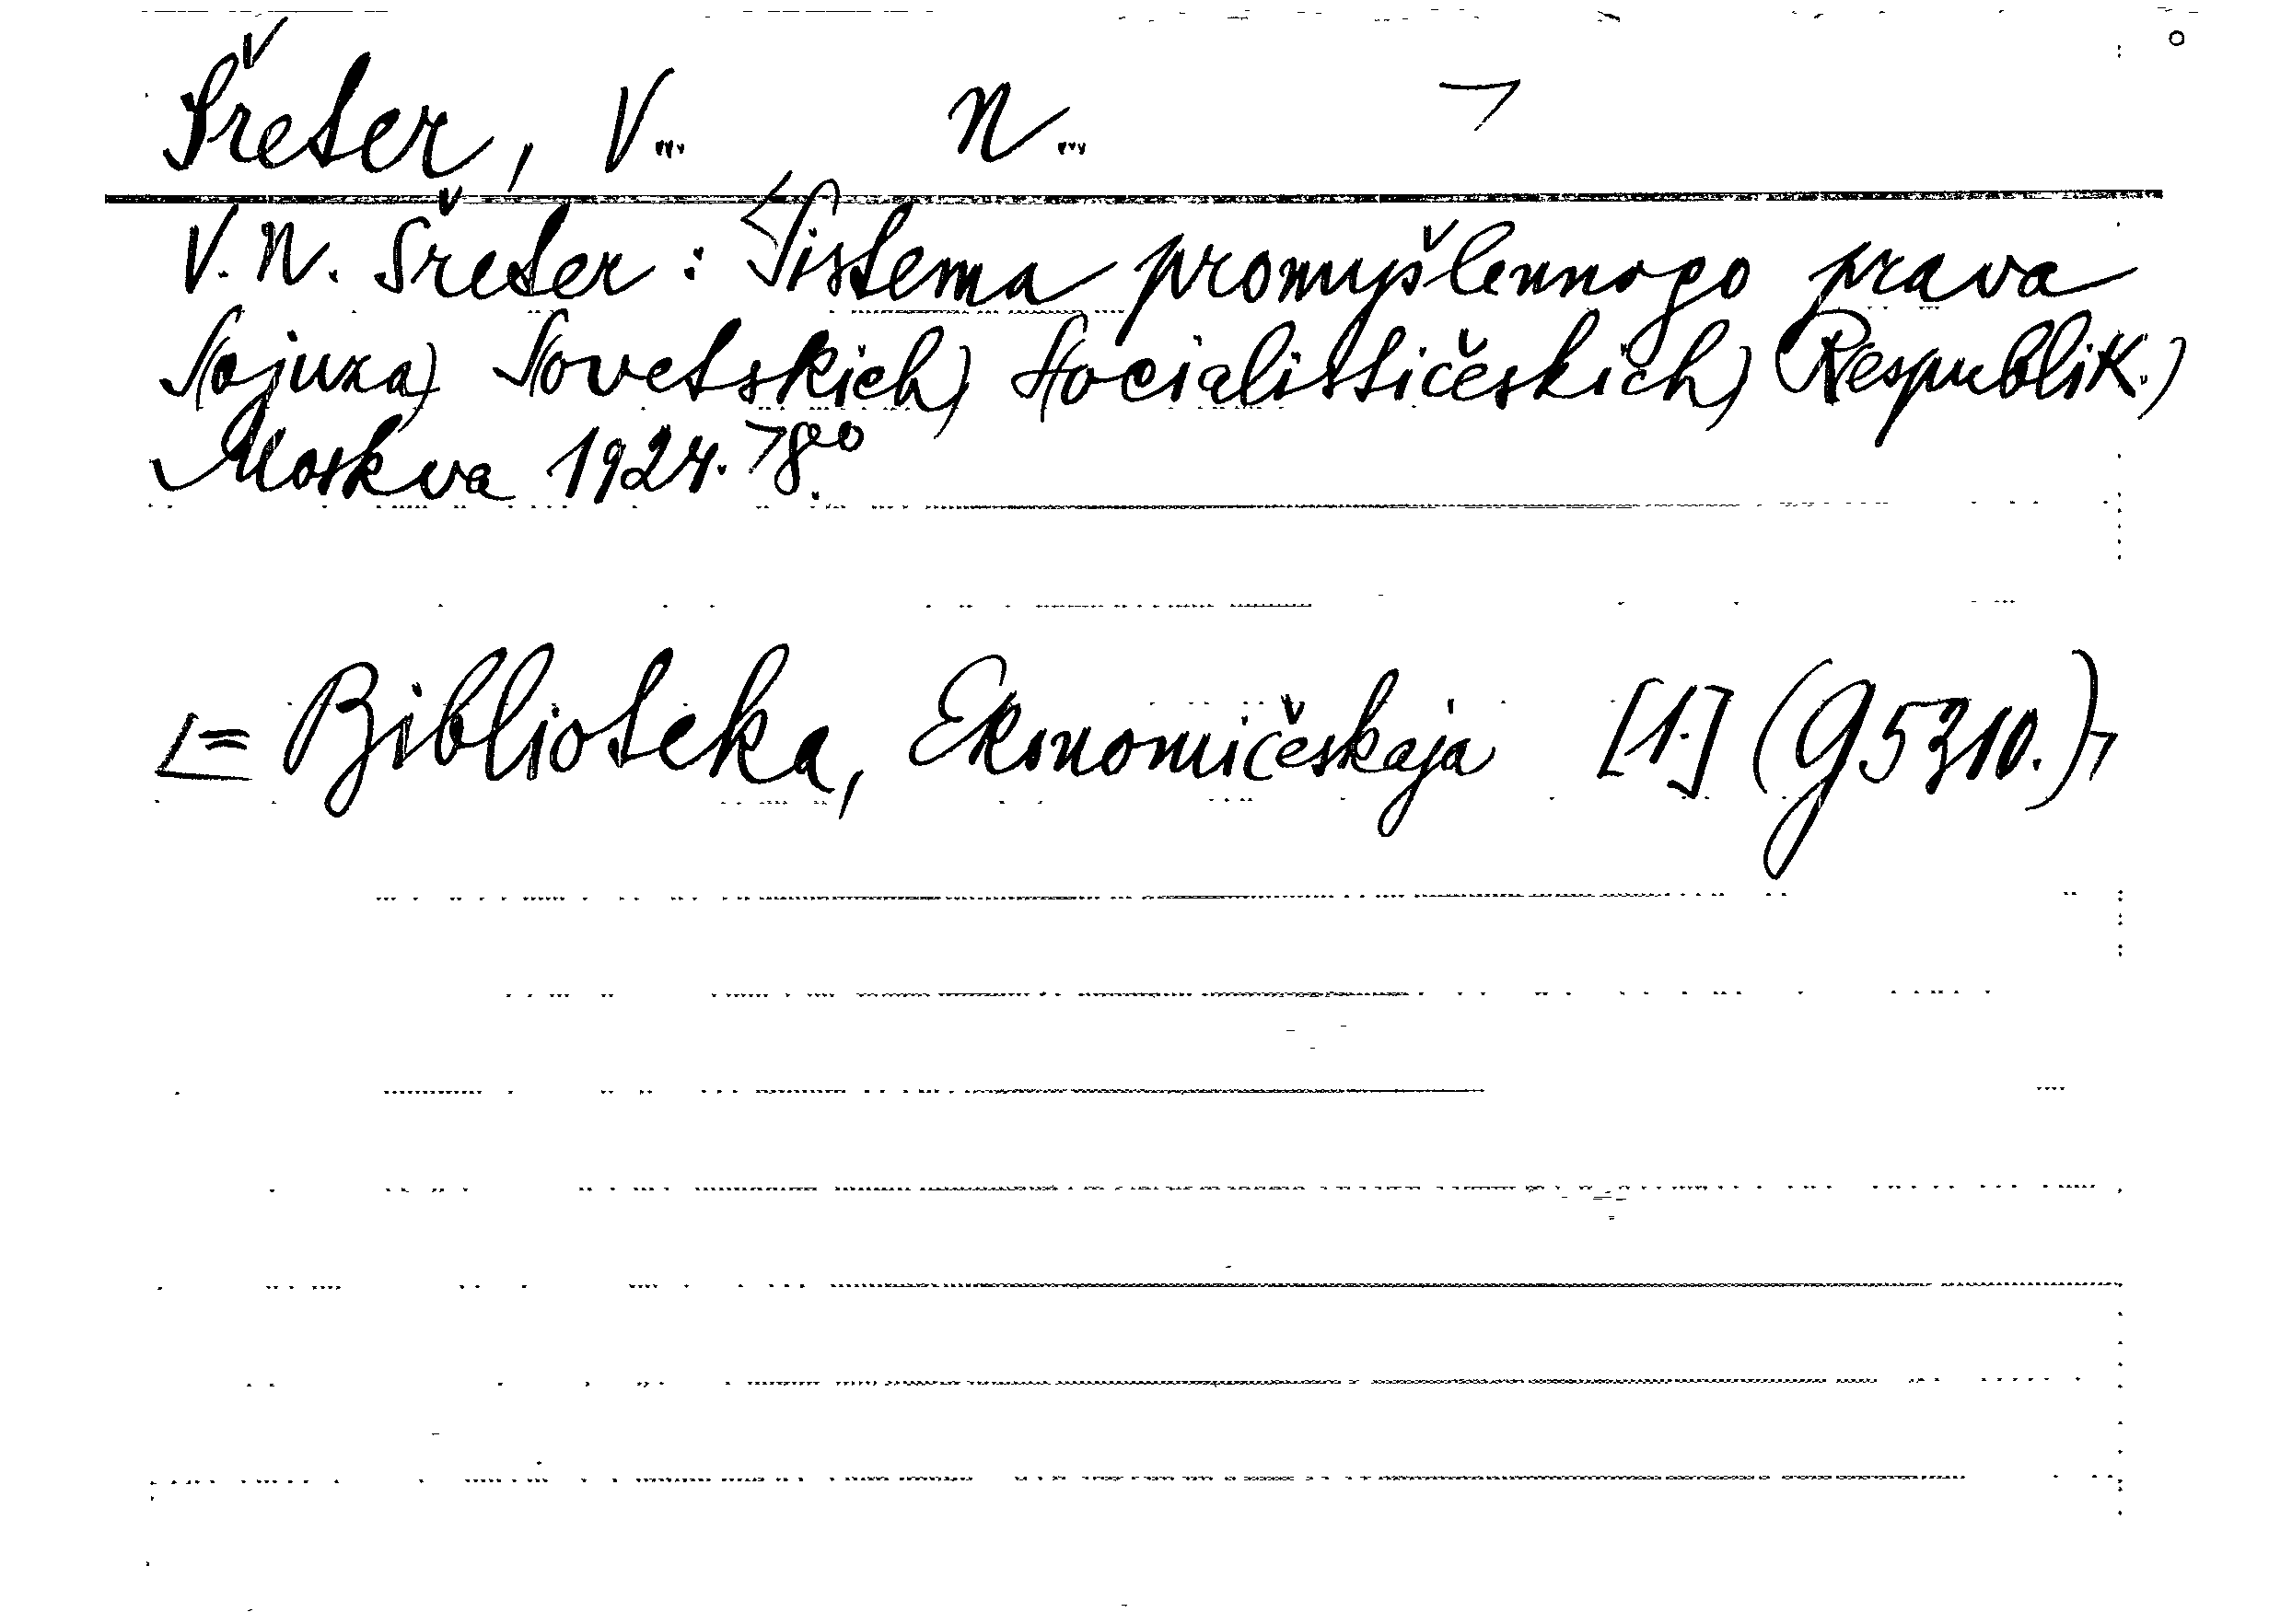 Šreter, V... N...
V. N. Šreter: Sistema promyšlennogo prava
Sojuza) Sovetskich) Socialističeskich) Respublik.)
Moskva 1924. 8°.
= Biblioteka, Ekonomičeskaja [1.] (G 5310.)